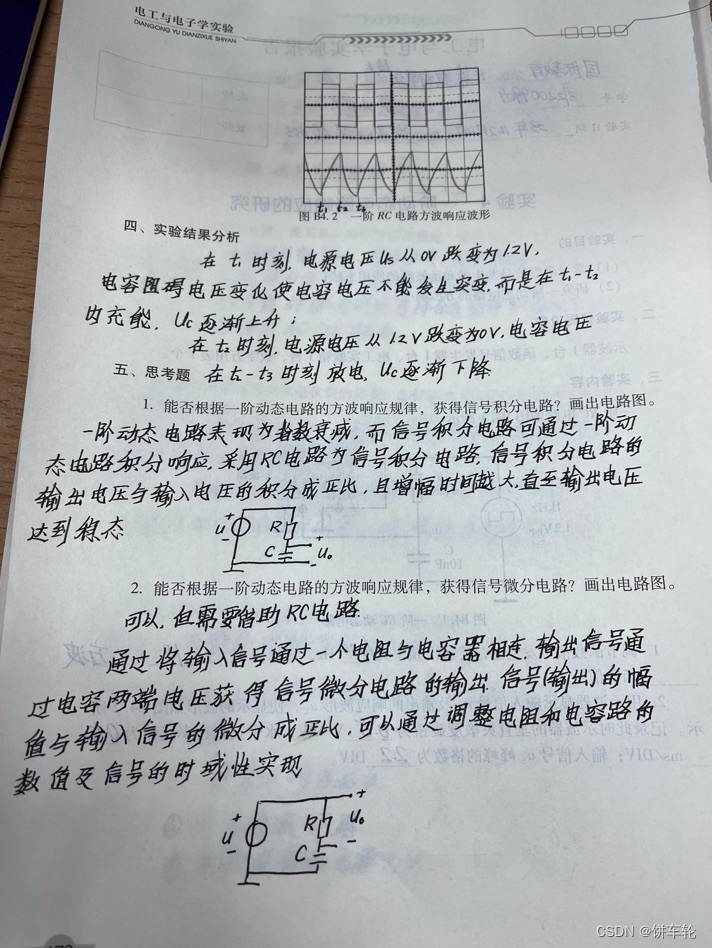 电工与电子学实验
DIANGONG YU DIANZIXUE SHIYAN
t₁ t₂ t₃
图 B4.2 一阶 RC 电路方波响应波形
四、实验结果分析
在 t₁ 时刻, 电源电压 Us 从 0V 跃变为 1.2V,
电容阻碍电压变化使电容电压不能发生突变, 而是在 t₁-t₂
内充能, Uc 逐渐上升;
在 t₂ 时刻, 电源电压从 1.2V 跃变为 0V, 电容电压
五、思考题
在 t₂-t₃ 时刻放电, Uc 逐渐下降
1. 能否根据一阶动态电路的方波响应规律，获得信号积分电路？画出电路图。
一阶动态电路表现为指数衰减, 而信号积分电路可通过一阶动
态电路积分响应, 采用RC电路为信号积分电路, 信号积分电路的
输出电压与输入电压的积分成正比, 且增幅时间越大, 直至输出电压
达到稳态
+ u - R C + Uo -
2. 能否根据一阶动态电路的方波响应规律，获得信号微分电路？画出电路图。
可以, 但需要借助RC电路
通过将输入信号通过一个电阻与电容器相连, 输出信号通
过电容两端电压获得信号微分电路的输出, 信号(输出)的幅
值与输入信号的微分成正比, 可以通过调整电阻和电容路的
数值及信号的时域性实现
+ u - R C + Uo -
ms/DIV；输入信号 u 峰峰的格数为 2.2 DIV
CSDN @饼车轮